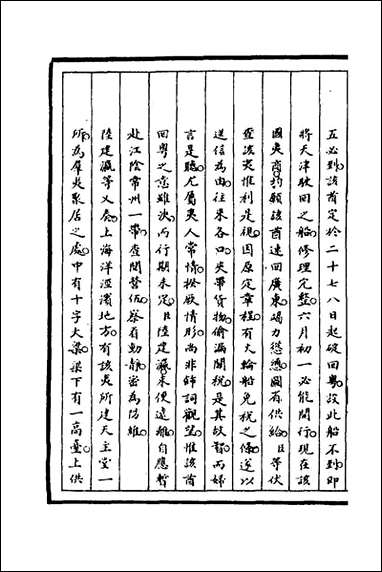 五必到該酋定於二十七八日起碇回粵設此船不到即
將天津駛回之船修理完整六月初一必能開行現在該
國夷商均願該酋速回廣東竭力慫慂圖有供給臣等伏
查該夷惟利是視因原定章程有火輪船免稅之條遂以
送信為由往來各口夾帶貨物偷漏關稅是其故智而婦
言是聽尤屬夷人常情揆厥情形尚非飾詞觀望惟該酋
回粵之意雖決而行期未定臣陸建瀛未便遠離自應暫
赴江陰常州一帶查閱營伍察看動靜密為防維
陸建瀛等又奏上海洋涇濱地方有該夷所建天主堂一
所為羣夷聚居之處中有十字大梁梁下有一高臺上供